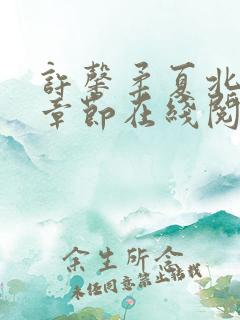 許馨柔夏北
章節在綫閱
余生所念
未经同意禁止转载